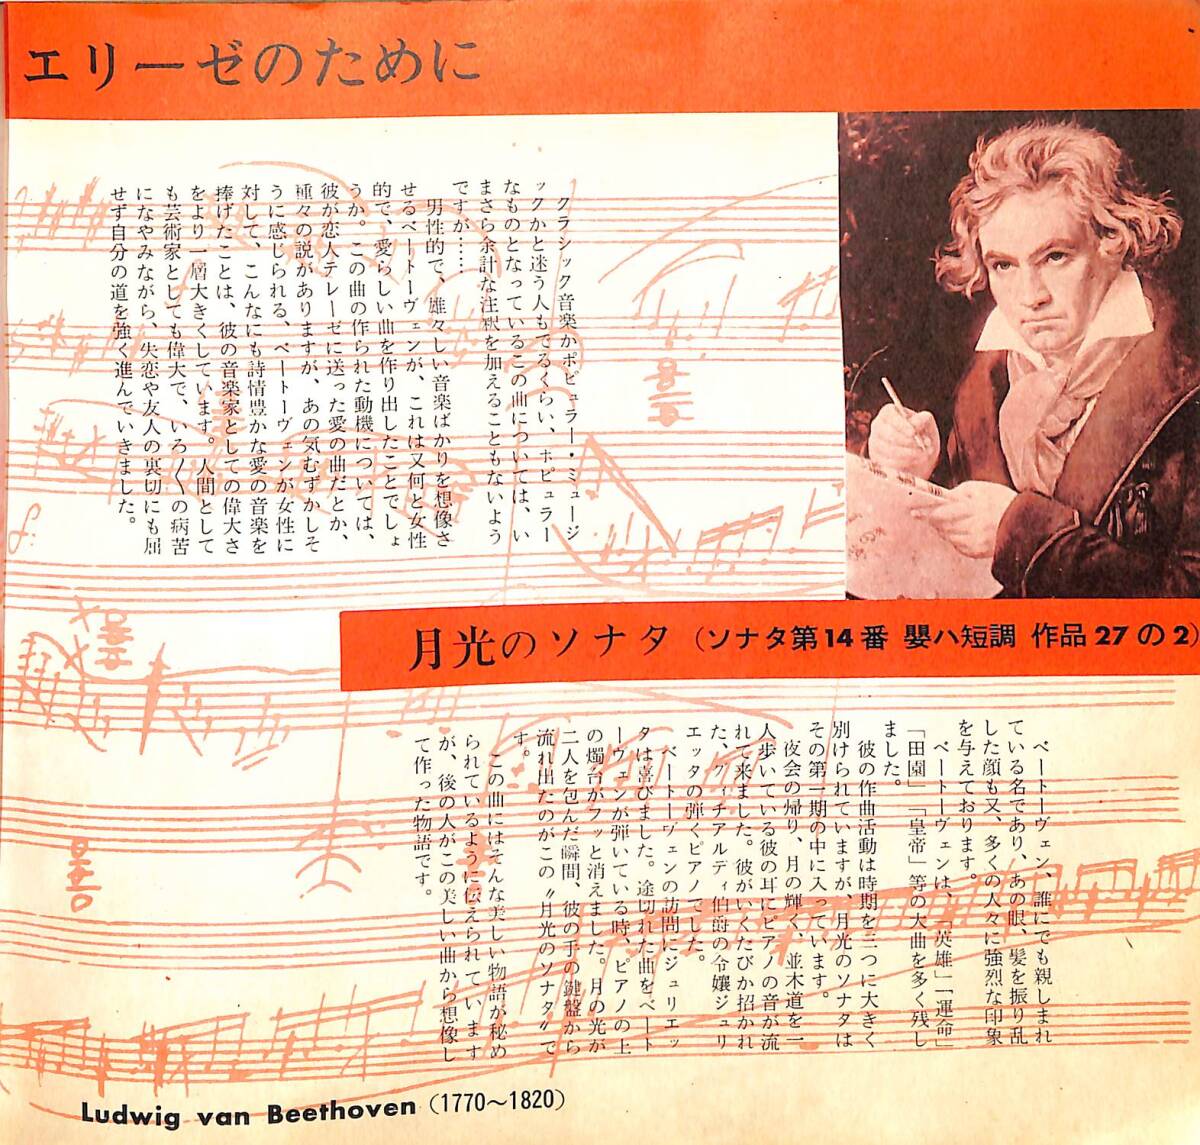 エリーゼのために
クラシック音楽かポピュラー・ミュージ
ックかと迷う人もでるくらい、ホピュラー
なものとなっているこの曲については、い
まさら余計な注釈を加えることもないよう
ですが……
男性的で、雄々しい音楽ばかりを想像さ
せるベートーヴェンが、これは又何と女性
的で、愛らしい曲を作り出したことでしょ
うか。この曲の作られた動機については、
彼が恋人テレーゼに送った愛の曲だとか、
種々の説がありますが、あの気むずかしそ
うに感じられる、ベートーヴェンが女性に
対して、こんなにも詩情豊かな愛の音楽を
捧げたことは、彼の音楽家としての偉大さ
をより一層大きくしています。人間として
も芸術家としても偉大で、いろ〱の病苦
になやみながら、失恋や友人の裏切にも屈
せず自分の道を強く進んでいきました。
月光のソナタ（ソナタ第14番 嬰ハ短調 作品27の2）
ベートーヴェン、誰にでも親しまれ
ている名であり、あの眼、髪を振り乱
した顔も又、多くの人々に強烈な印象
を与えております。
ベートーヴェンは、「英雄」「運命」
「田園」「皇帝」等の大曲を多く残し
ました。
彼の作曲活動は時期を三つに大きく
別けられていますが、月光のソナタは
その第一期の中に入っています。
夜会の帰り、月の輝く、並木道を一
人歩いている彼の耳にピアノの音が流
れて来ました。彼がいくたびか招かれ
た、グィチアルディ伯爵の令嬢ジュリ
エッタの弾くピアノでした。
ベートーヴェンの訪問にジュリエッ
タは喜びました。途切れた曲をベート
ーヴェンが弾いている時、ピアノの上
の燭台がフッと消えました。月の光が
二人を包んだ瞬間、彼の手の鍵盤から
流れ出たのがこの〝月光のソナタ〟で
す。
この曲にはそんな美しい物語が秘め
られているように伝えられています
が、後の人がこの美しい曲から想像し
て作った物語です。
Ludwig van Beethoven（1770〜1820）